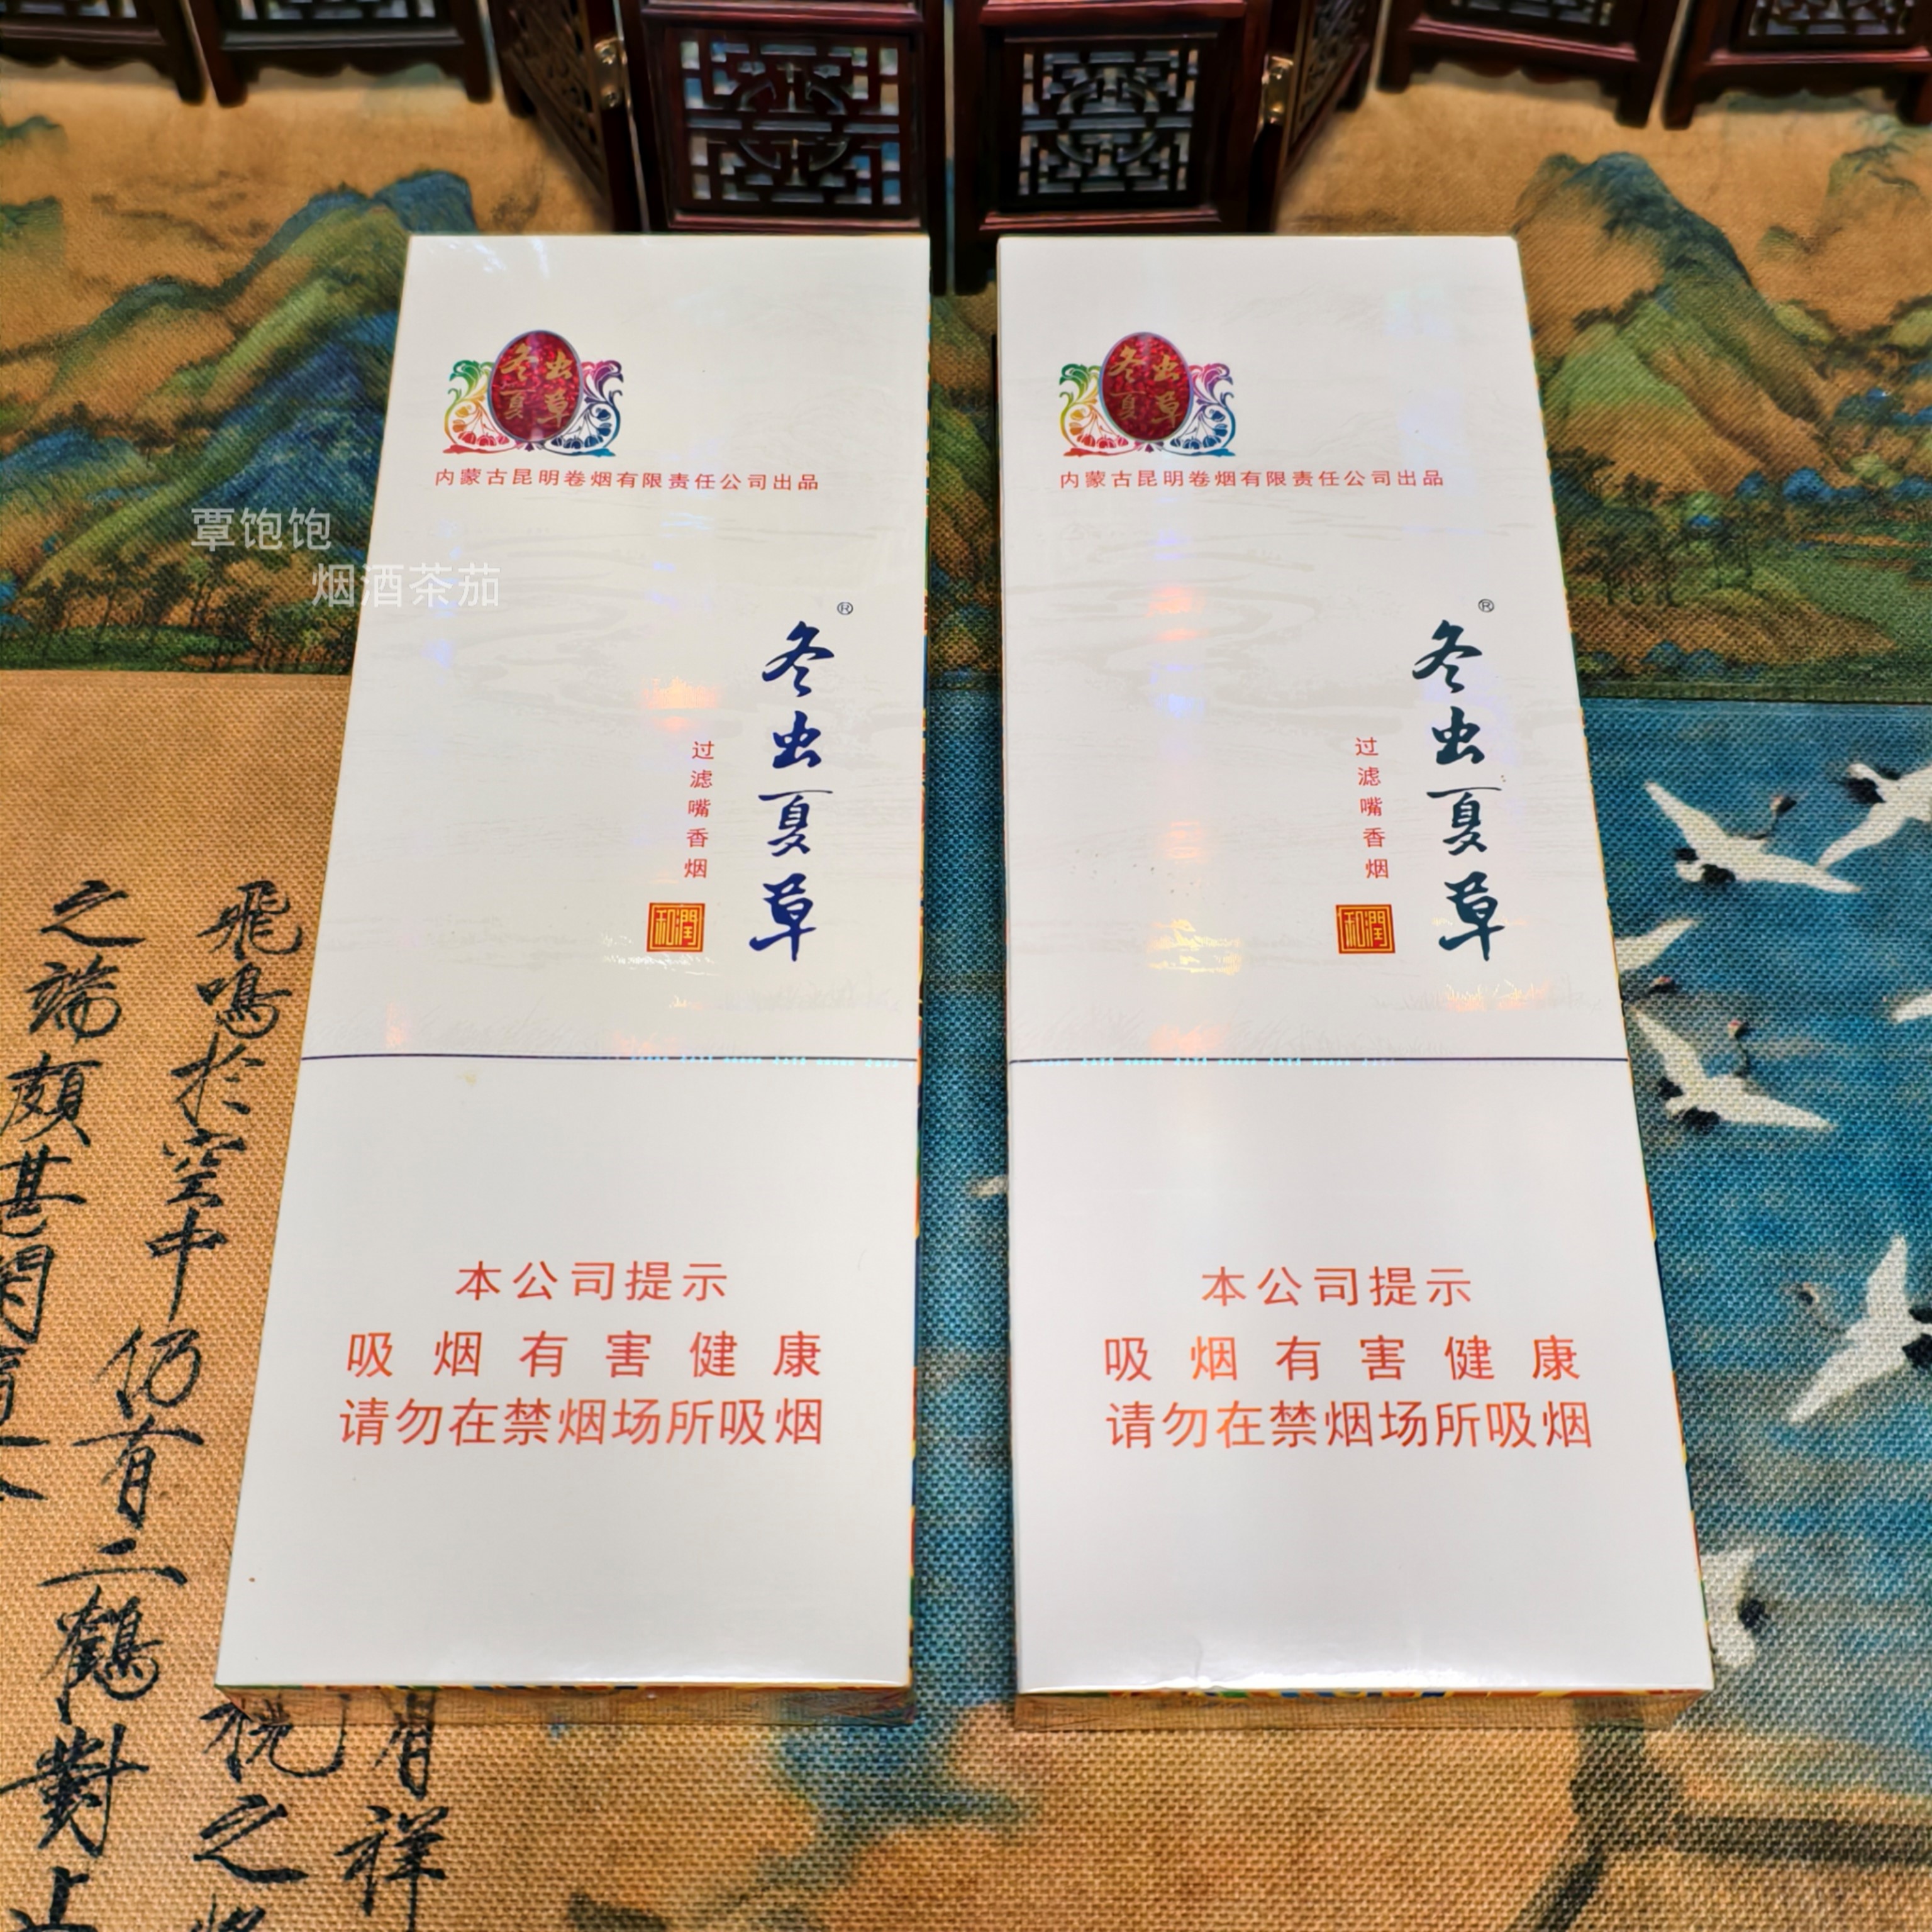 覃饱饱
烟酒茶茄
冬虫
夏草
内蒙古昆明卷烟有限责任公司出品
冬虫夏草®
过滤嘴香烟
和润
本公司提示
吸烟有害健康
请勿在禁烟场所吸烟
冬虫
夏草
内蒙古昆明卷烟有限责任公司出品
冬虫夏草®
过滤嘴香烟
和润
本公司提示
吸烟有害健康
请勿在禁烟场所吸烟
飛鳴於空中仍有二鶴對止
之端頗甚閑
祥